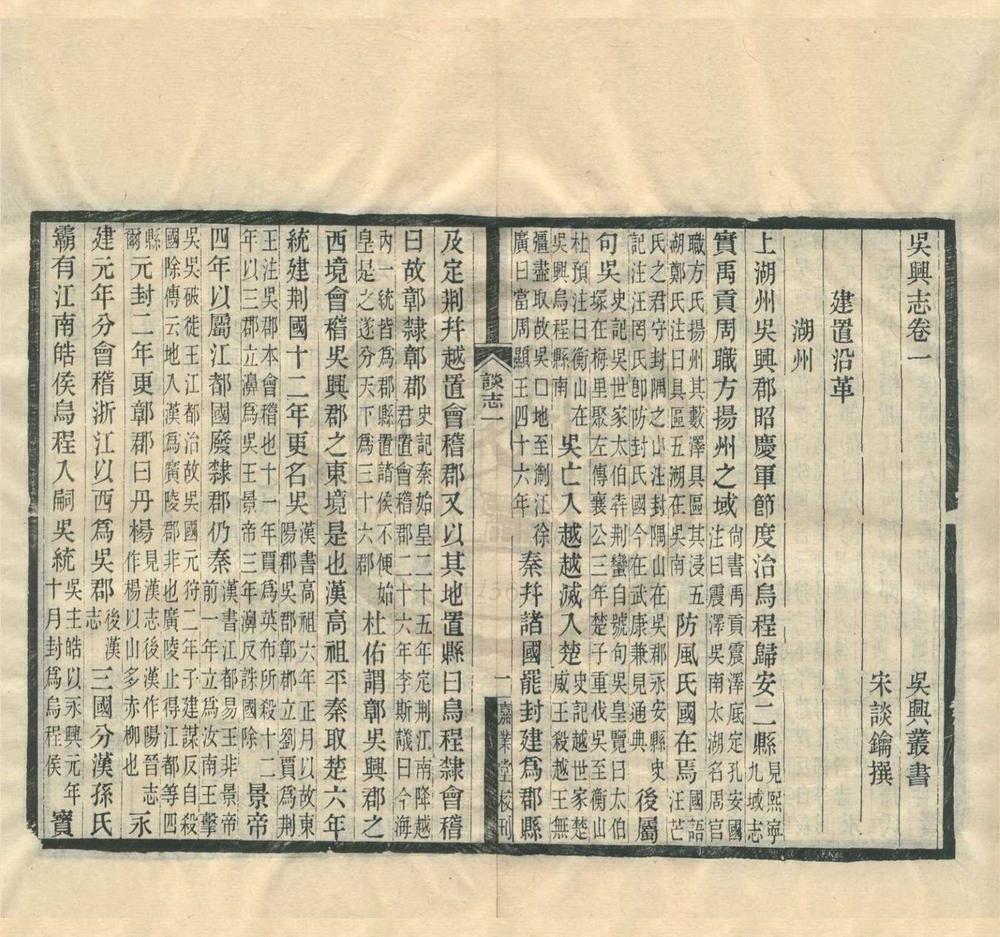 吳興志卷一　吳興叢書
宋談鑰撰
建置沿革
湖州
上湖州吳興郡昭慶軍節度治烏程歸安二縣見熙寧九域志
實禹貢周職方揚州之域尚書禹貢震澤底定孔安國注曰震澤吳南太湖名周官
職方氏揚州其藪澤具區其浸五湖鄭氏注曰具區五湖在吳南防風氏國在焉國語汪芒
氏之君守封隅之山注封隅山在吳郡永安縣史記注汪罔氏卽防封氏國今在武康兼見通典後屬
句吳史記吳世家太伯犇荆蠻自號句吳皇覽曰太伯冢在梅里聚左傳襄公三年楚子重伐吳至衡山
杜預注曰衡山在吳興烏程縣南吳亡入越越滅入楚史記越世家楚威王殺越王無
彊盡取故吳口地至淛江徐廣曰當周顯王四十六年秦幷諸國罷封建爲郡縣
談志一
一
嘉業堂校刊
及定荆幷越置會稽郡又以其地置縣曰烏程隸會稽
曰故鄣隸鄣郡史記秦始皇二十五年定荆江南降越君置會稽郡二十六年李斯議曰今海
內一統皆爲郡縣置諸侯不便始皇是之遂分天下爲三十六郡杜佑謂鄣吳興郡之
西境會稽吳興郡之東境是也漢高祖平秦取楚六年
統建荆國十二年更名吳漢書高祖六年正月以故東陽郡吳郡鄣郡立劉賈爲荆
王注吳郡本會稽也十一年賈爲英布所殺十二年以三郡立濞爲吳王景帝三年濞反誅國除景帝
四年以屬江都國廢隸郡仍秦漢書江都易王非景帝前一年立爲汝南王擊
吳吳破徙王江都治故吳國元狩二年子建謀反自殺國除傳云地入漢爲廣陵郡非也廣陵止得江都等四
縣爾元封二年更鄣郡曰丹楊見漢志後漢作陽晉志作楊以山多赤柳也永
建元年分會稽浙江以西爲吳郡後漢志三國分漢孫氏
霸有江南皓侯烏程入嗣吳統吳主皓以永興元年十月封爲烏程侯寶